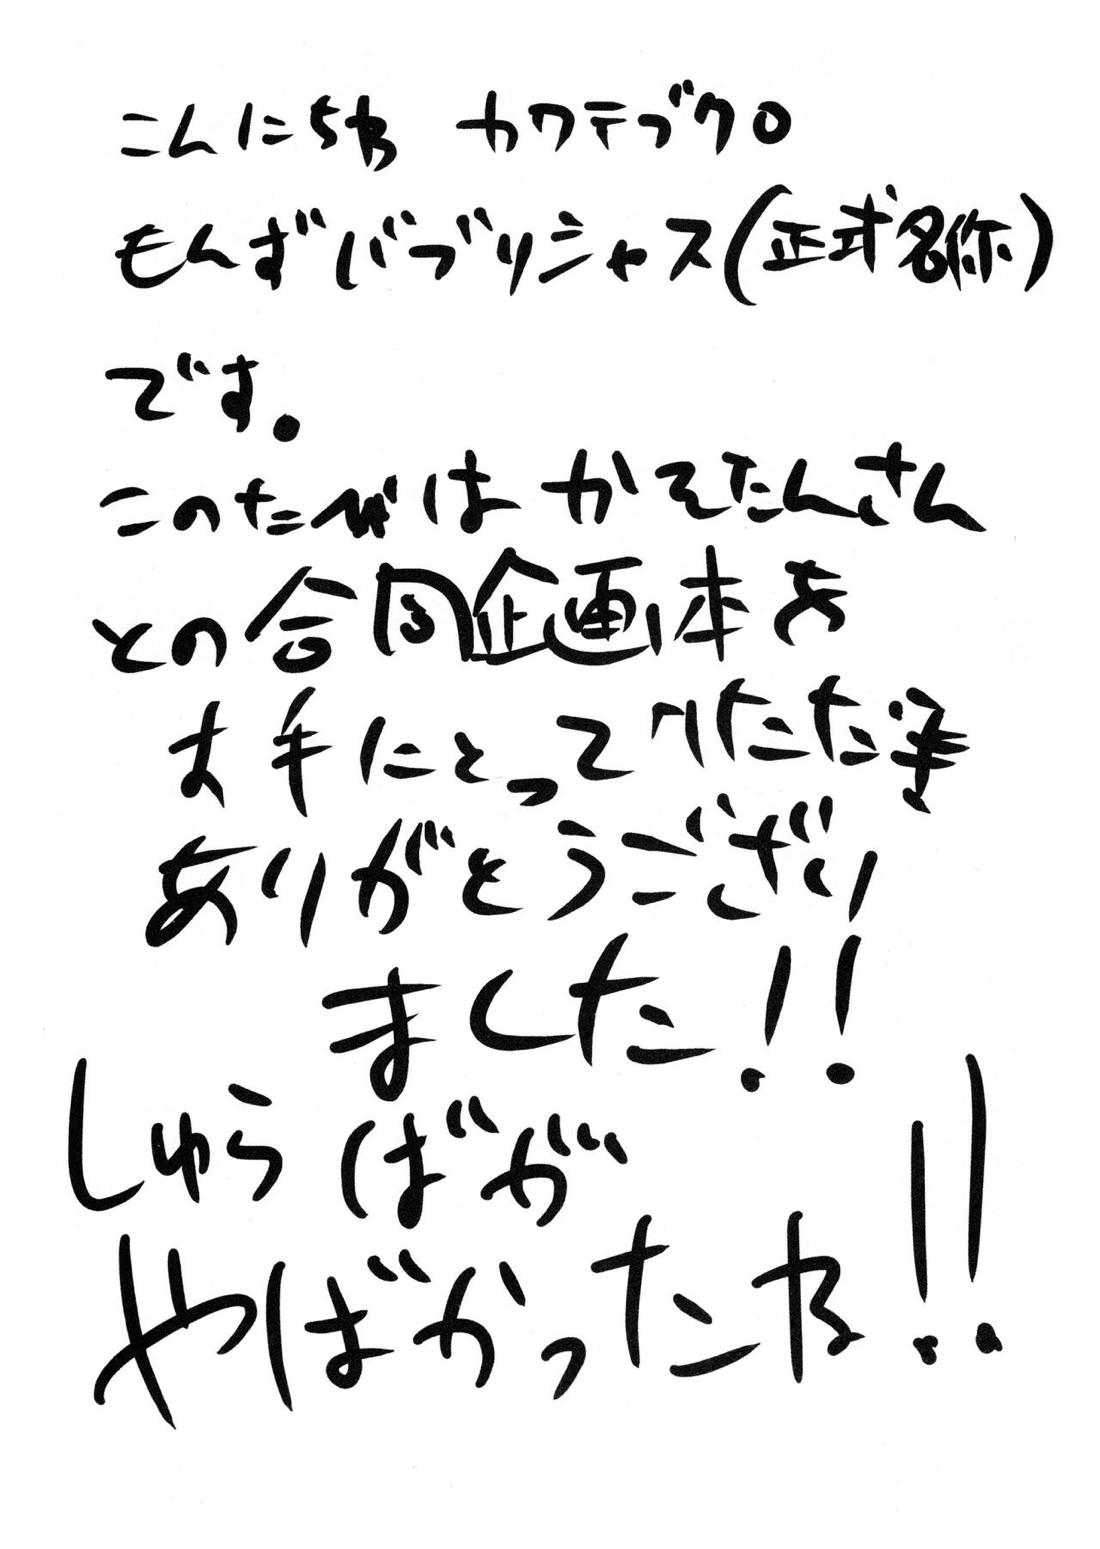 こんにちわ カワテブクロ
もんずバブリシャス(正式名称)
です。
このたびは かてたんさん
との合同企画本を
お手にとっていただき
ありがとうござい
ました!!
しゅらばが
やばかったね!!